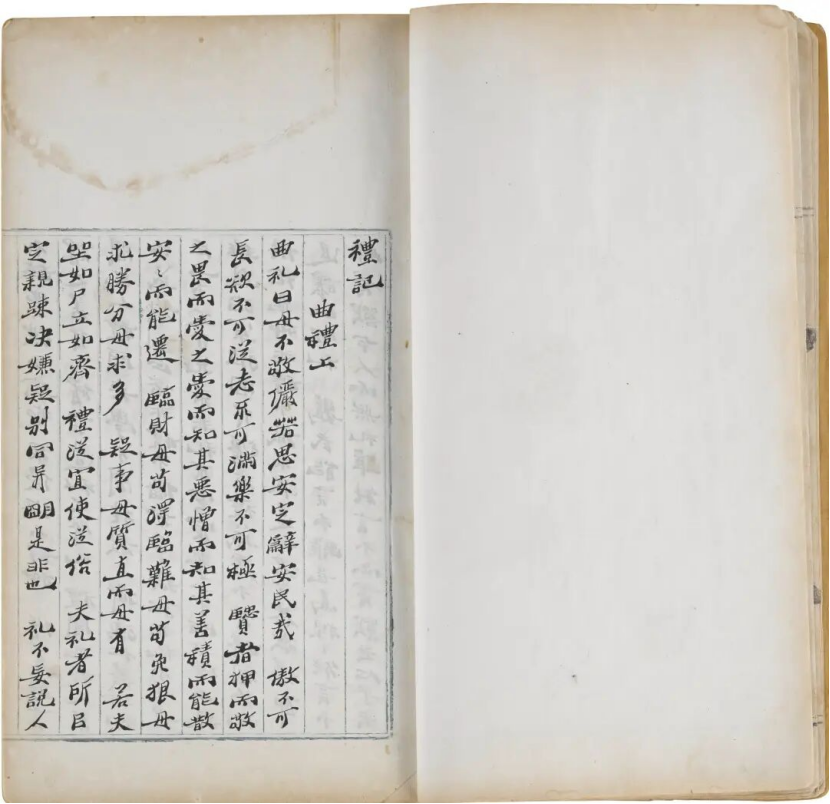 禮記
曲禮上
曲礼曰毋不敬儼若思安定辭安民哉 傲不可
長欲不可従志不可滿樂不可極 賢者狎而敬
之畏而愛之愛而知其悪憎而知其善積而能散
安〻而能遷 臨財毋苟淂臨難毋苟免狠毋
求勝分毋求多 疑事毋質直而毋有 若夫
坐如尸立如齊 禮従宜使従俗 夫礼者所㠯
定親踈决嫌疑别同异明是非也 礼不妄説人